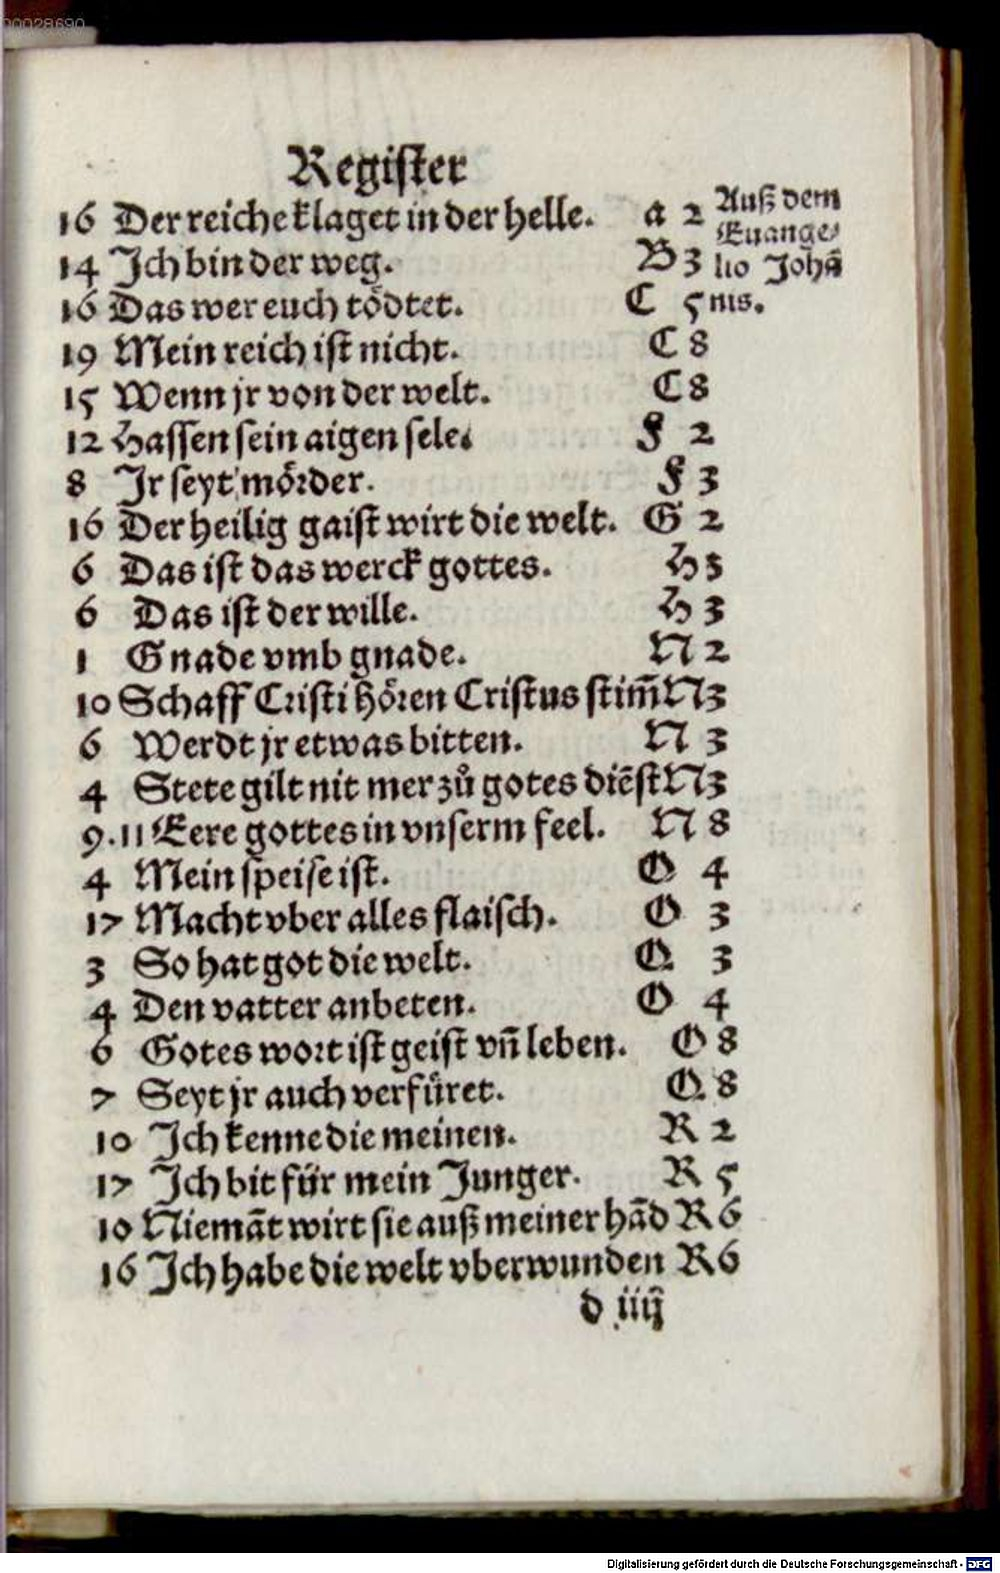 00028690
Register
16 Der reiche klaget in der helle. a 2
14 Ich bin der weg. B 3
16 Das wer euch tödtet. C 5
19 Mein reich ist nicht. C 8
15 Wenn jr von der welt. C 8
12 Hassen sein aigen sele. F 2
8 Jr seyt mörder. F 3
16 Der heilig gaist wirt die welt. G 2
6 Das ist das werck gottes. H 3
6 Das ist der wille. H 3
1 Gnade vmb gnade. N 2
10 Schaff Cristi hören Cristus stim̄ N 3
6 Werdt jr etwas bitten. N 3
4 Stete gilt nit mer zů gotes diēst N 3
9.11 Eere gottes in vnserm feel. N 8
4 Mein speise ist. O 4
17 Macht vber alles flaisch. O 3
3 So hat got die welt. Q 3
4 Den vatter anbeten. O 4
6 Gotes wort ist geist vn̄ leben. O 8
7 Seyt jr auch verfüret. Q 8
10 Ich kenne die meinen. R 2
17 Ich bit für mein Junger. R 5
10 Niemāt wirt sie auß meiner hād R 6
16 Ich habe die welt vberwunden R 6
d iiij
Auß dem
Euange-
lio Johā
nis.
Digitalisierung gefördert durch die Deutsche Forschungsgemeinschaft - DFG